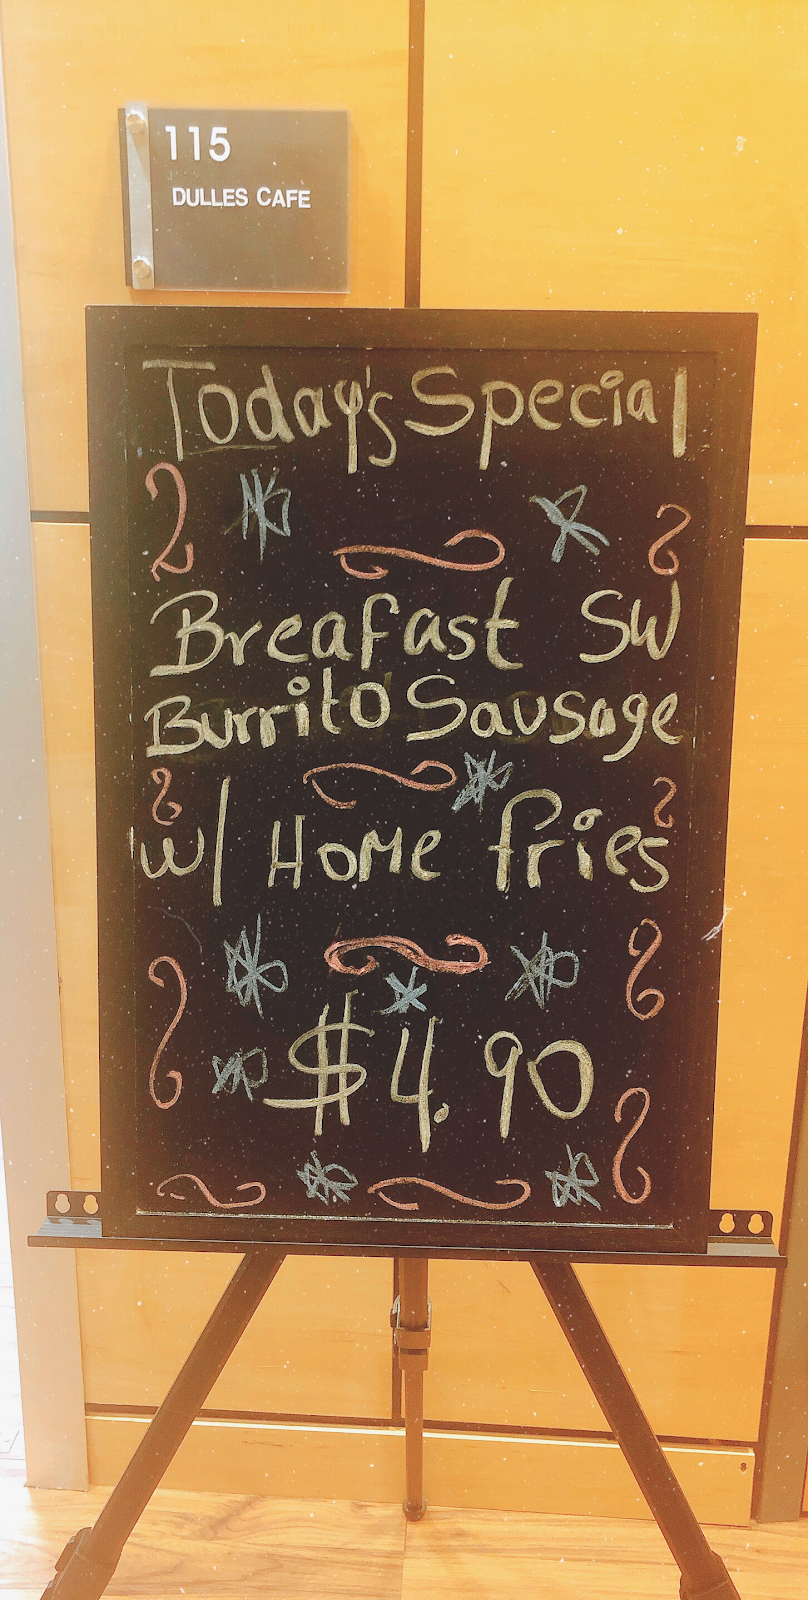 115
DULLES CAFE
Today's Special
Breafast SW
Burrito Sausage
w/ Home fries
$4.90